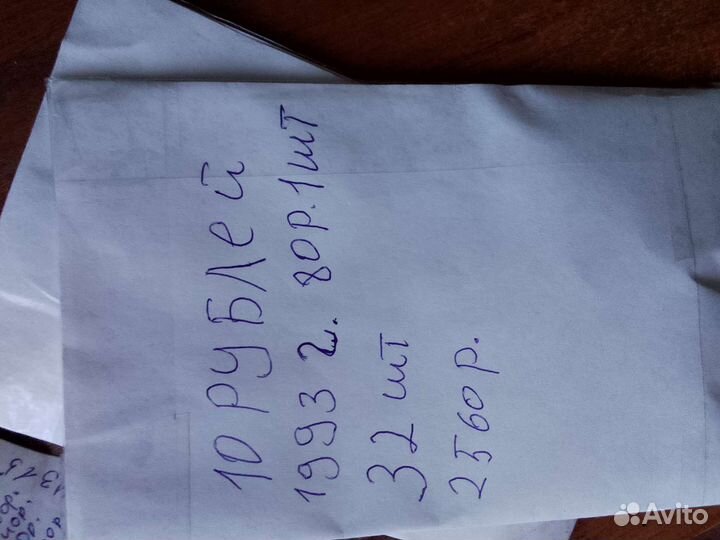 10 РУБЛЕЙ
1993 г. 80р. 1 шт
32 шт
2560 р.
Avito